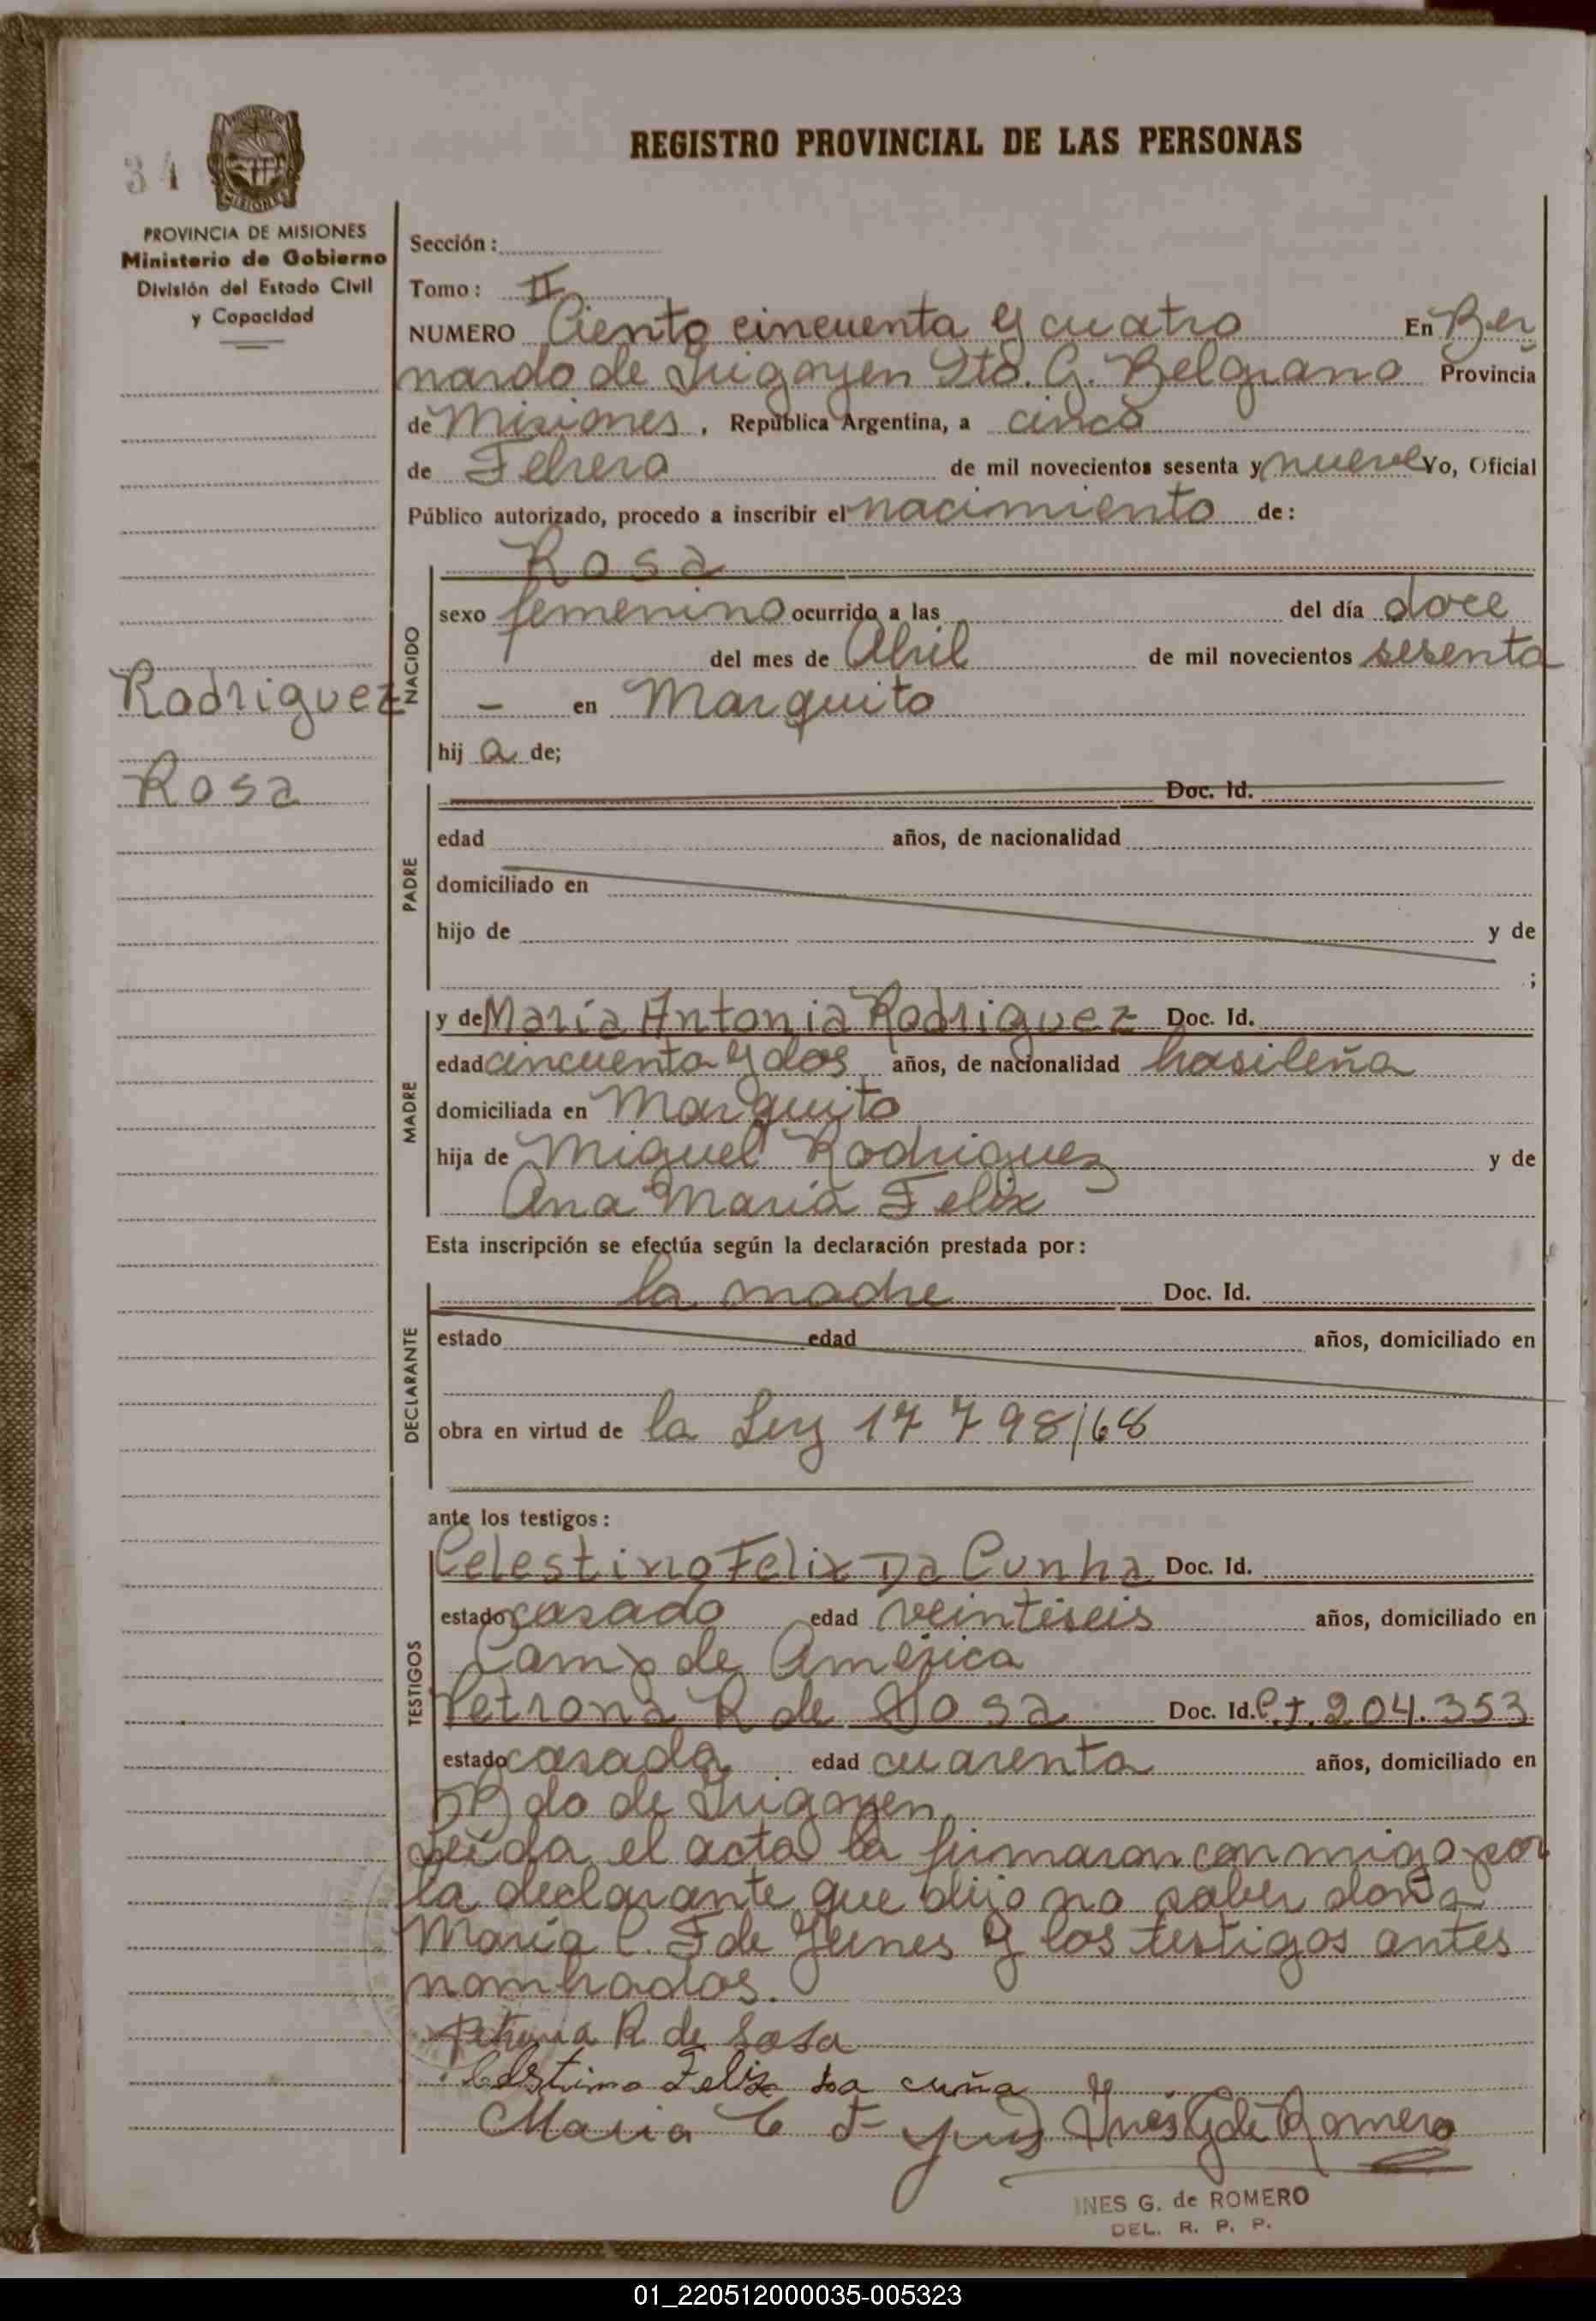 34
REGISTRO PROVINCIAL DE LAS PERSONAS
PROVINCIA DE MISIONES
MISIONES
PROVINCIA DE MISIONES
Ministerio de Gobierno
División del Estado Civil
y Capacidad
Rodriguez
Rosa
Sección:
Tomo: II
NUMERO Ciento cincuenta y cuatro En Ber
nardo de Irigoyen Dto. G. Belgrano Provincia
de Misiones, República Argentina, a cinco
de Febrero de mil novecientos sesenta y nueve Yo, Oficial
Público autorizado, procedo a inscribir el nacimiento de:
NACIDO
Rosa
sexo femenino ocurrido a las del día doce
del mes de Abril de mil novecientos sesenta
- en Marquito
hij a de;
PADRE
Doc. Id.
edad años, de nacionalidad
domiciliado en
hijo de y de
;
MADRE
y de María Antonia Rodriguez Doc. Id.
edad cincuenta y dos años, de nacionalidad brasileña
domiciliada en Marquito
hija de Miguel Rodriguez y de
Ana Maria Felix
Esta inscripción se efectúa según la declaración prestada por:
DECLARANTE
la madre Doc. Id.
estado edad años, domiciliado en
obra en virtud de la Ley 17798/68
ante los testigos:
TESTIGOS
Celestino Felix Da Cunha Doc. Id.
estado casado edad veintiseis años, domiciliado en
Camp de América
Petrona R de Sosa Doc. Id. 204.353
estado casada edad cuarenta años, domiciliado en
Bdo de Irigoyen
Leída el acta la firmaron conmigo por
la declarante que dijo no saber doña
María C. F de Yunes y los testigos antes
nombrados.
Petrona R de Sosa
Celestino Felix da cuña
Maria C F Inés G de Romero
INES G. de ROMERO
DEL. R. P. P.
01_220512000035-005323